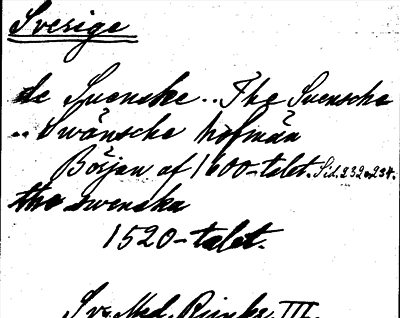 Sverige
de Svenske.. The Svensche
.. Swänsche hofmän
Början af 1600-talet. Sid. 232 o. 234.
the swenska
1520-talet.
Sv. Med. Rimkr. III.